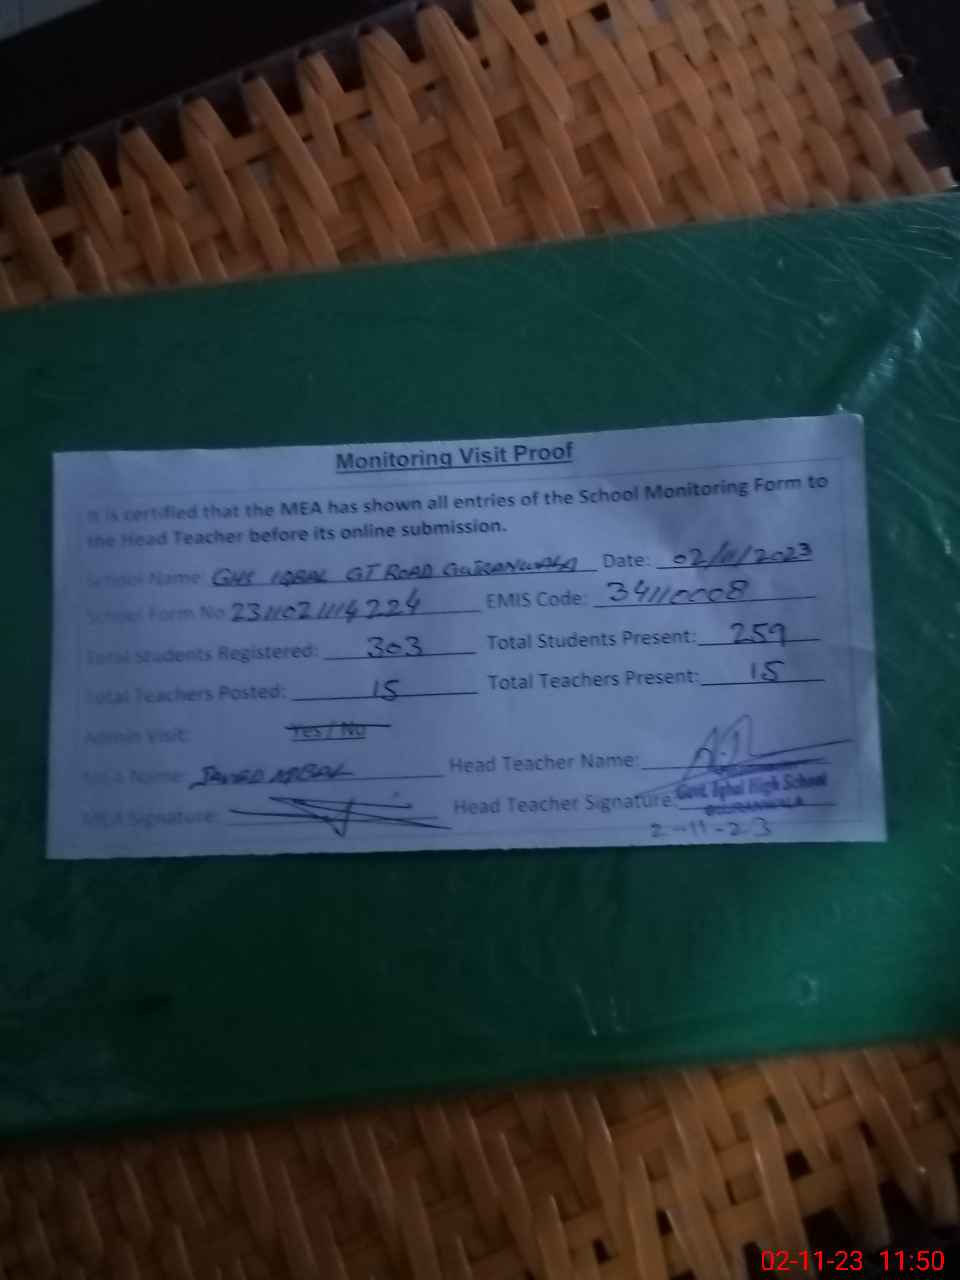 Monitoring Visit Proof
It is certified that the MEA has shown all entries of the School Monitoring Form to
the Head Teacher before its online submission.
School Name: GHS IQBAL GT ROAD GUJRANWALA Date: 02/11/2023
School Form No 2311021114224 EMIS Code: 34110008
Total Students Registered: 303 Total Students Present: 259
Total Teachers Posted: 15 Total Teachers Present: 15
Admin Visit: Yes / No
MEA Name: JAVED IQBAL Head Teacher Name:
MEA Signature: Head Teacher Signature:
Govt. Iqbal High School
GUJRANWALA
2-11-23
02-11-23 11:50